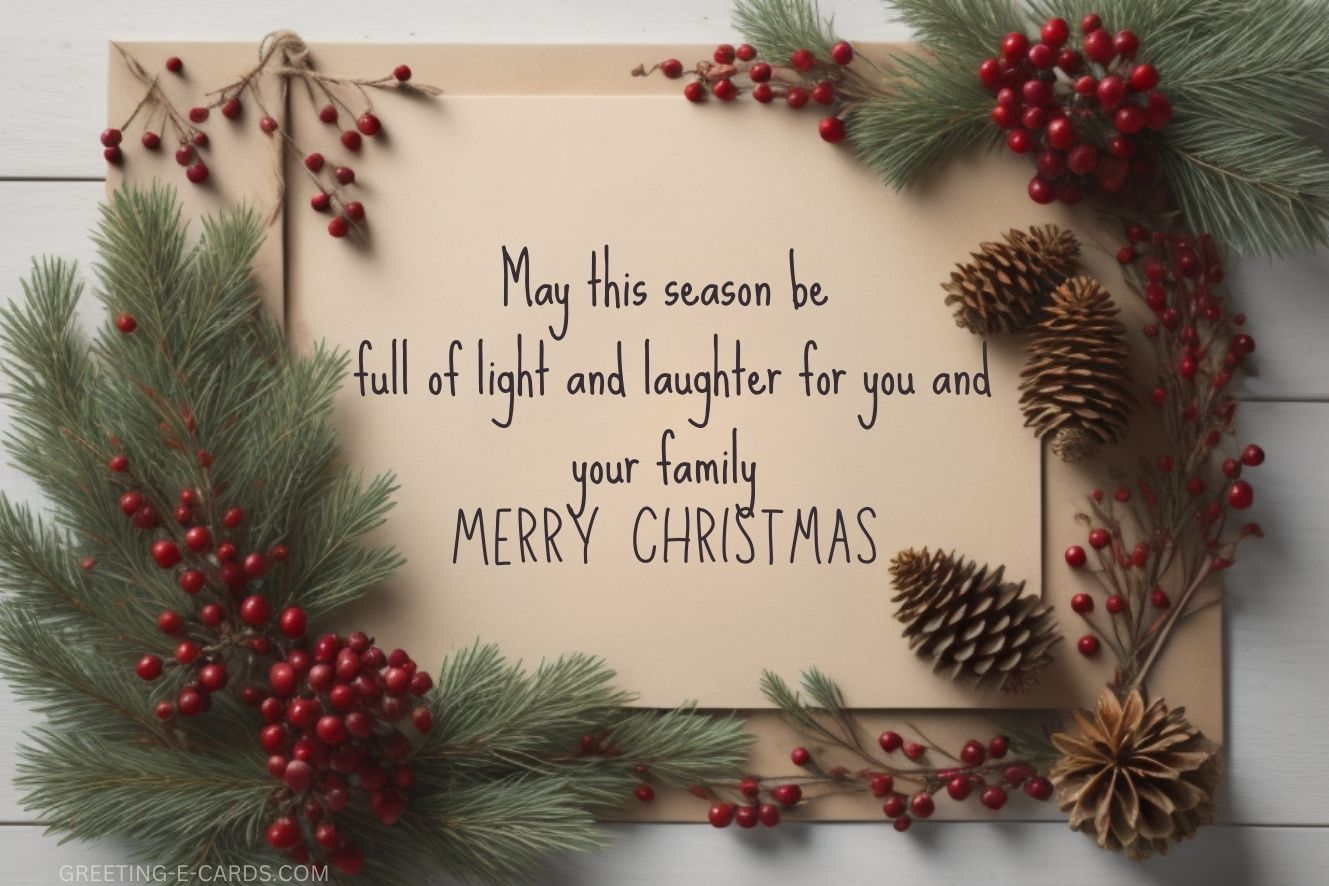 May this season be
full of light and laughter for you and
your family
MERRY CHRISTMAS
GREETING-E-CARDS.COM